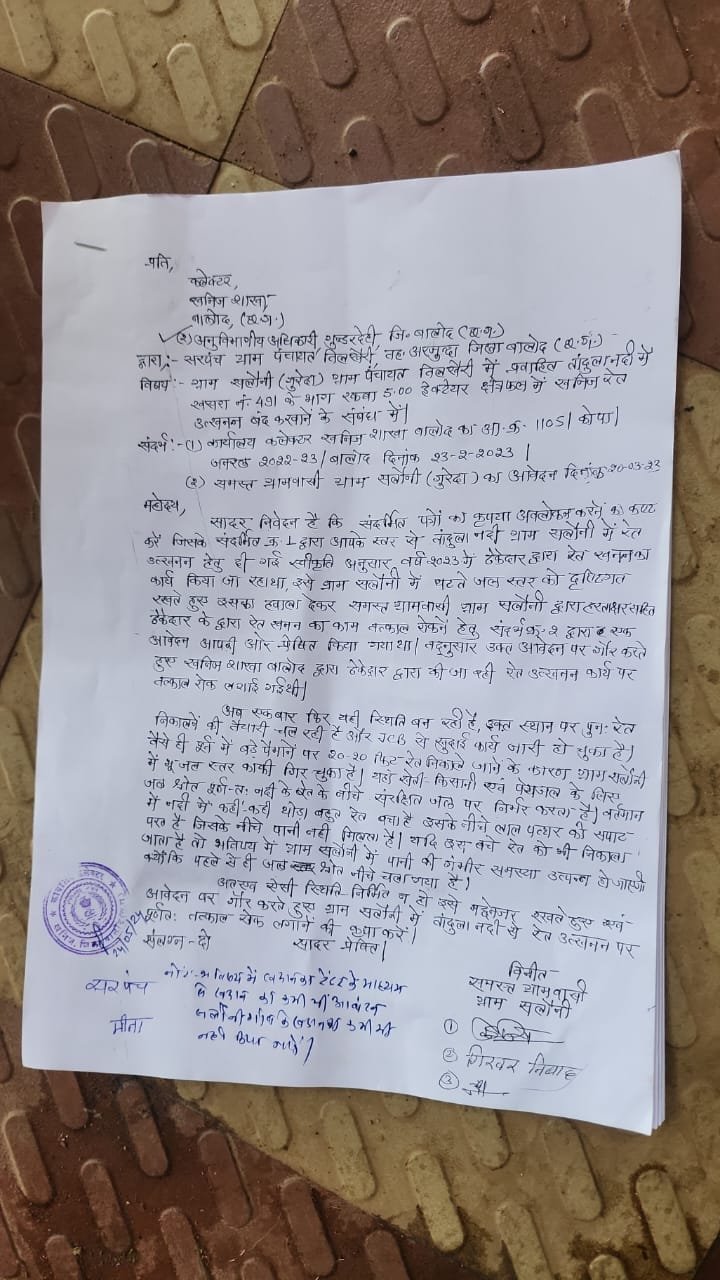 प्रति,
कलेक्टर,
खनिज शाखा,
बालोद, (छ.ग.)
(२) अनुविभागीय अधिकारी, गुन्डरदेही, जि॰ बालोद (छ.ग.)
द्वारा:- सरपंच ग्राम पंचायत तिलखैरी, तह. अरजुन्दा जिला बालोद (छ.ग.)
विषय:- ग्राम सलौनी (गुरेदा) ग्राम पंचायत तिलखैरी में प्रवाहित तांदुला नदी में
खसरा नं- 491 के भाग रकबा 5.00 हेक्टेयर क्षेत्रफल में खनिज रेत
उत्खनन बंद करवाने के संबंध में।
संदर्भ:-(1) कार्यालय कलेक्टर खनिज शाखा बालोद का ज्ञा.क्र. 1105/
2022-23/ बालोद दिनांक 23-2-2023।
(२) समस्त ग्रामवासी ग्राम सलौनी (गुरेदा) का आवेदन दिनांक 20-03-23
महोदय,
सादर निवेदन है कि संदर्भित पत्रों का कृपया अवलोकन करने का कष्ट
करें जिसके संदर्भित क्र.-1 द्वारा आपके स्तर से तांदुला नदी ग्राम सलौनी में रेत
उत्खनन हेतु दी गई स्वीकृति अनुसार, वर्ष 2023 में ठेकेदार द्वारा रेत खनन का
कार्य किया जा रहा था, इसे ग्राम सलौनी में घटते जल स्तर को दृष्टिगत
रखते हुए इसका हवाला देकर समस्त ग्रामवासी ग्राम सलौनी द्वारा हस्ताक्षर सहित
ठेकेदार के द्वारा रेत खनन का काम तत्काल रोकने हेतु संदर्भ क्र-2 द्वारा एक
आवेदन आपकी ओर प्रेषित किया गया था। तद्नुसार उक्त आवेदन पर गौर करते
हुए खनिज शाखा बालोद द्वारा ठेकेदार द्वारा की जा रही रेत उत्खनन कार्य पर
तत्काल रोक लगाई गई थी।
अब एक बार फिर वही स्थिति बन रही है, इक्त स्थान पर पुनः रेत
निकालने की तैयारी चल रही है और JCB से खुदाई कार्य जारी हो चुका है।
वैसे ही पूर्व में बडे पैमाने पर 20-20 फिट रेत निकाले जाने के कारण ग्राम सलौनी
में भू जल स्तर काफी गिर चुका है। यहां खेती-किसानी एवं पेयजल के लिए
जल श्रोत पूर्ण-तः नदी के रेत के नीचे संरक्षित जल पर निर्भर करता है। वर्तमान
में नदी में कहीं-कहीं थोड़ा बहुत रेत बचा है उसके नीचे लाल पत्थर की सपाट
परत है जिसके नीचे पानी नही मिलता है। यदि इस बचे रेत को भी निकाला
जाता है तो भविष्य में ग्राम सलौनी में पानी की गंभीर समस्या उत्पन्न हो जाएगी
क्योंकि पहले से ही जल श्रोत नीचे चला गया है।
अतएव ऐसी स्थिति निर्मित न हो इसे मद्देनजर रखते हुए एवं
आवेदन पर गौर करते हुए ग्राम सलौनी में तांदुला नदी से रेत उत्खनन पर
पूर्णतः तत्काल रोक लगाने की कृपा करें।
संलग्न-दो सादर प्रेषित।
विनीत
समस्त ग्रामवासी
ग्राम सलौनी
सरपंच
मीता
नोट:- भविष्य में
①
② गिरवर निषाद
③